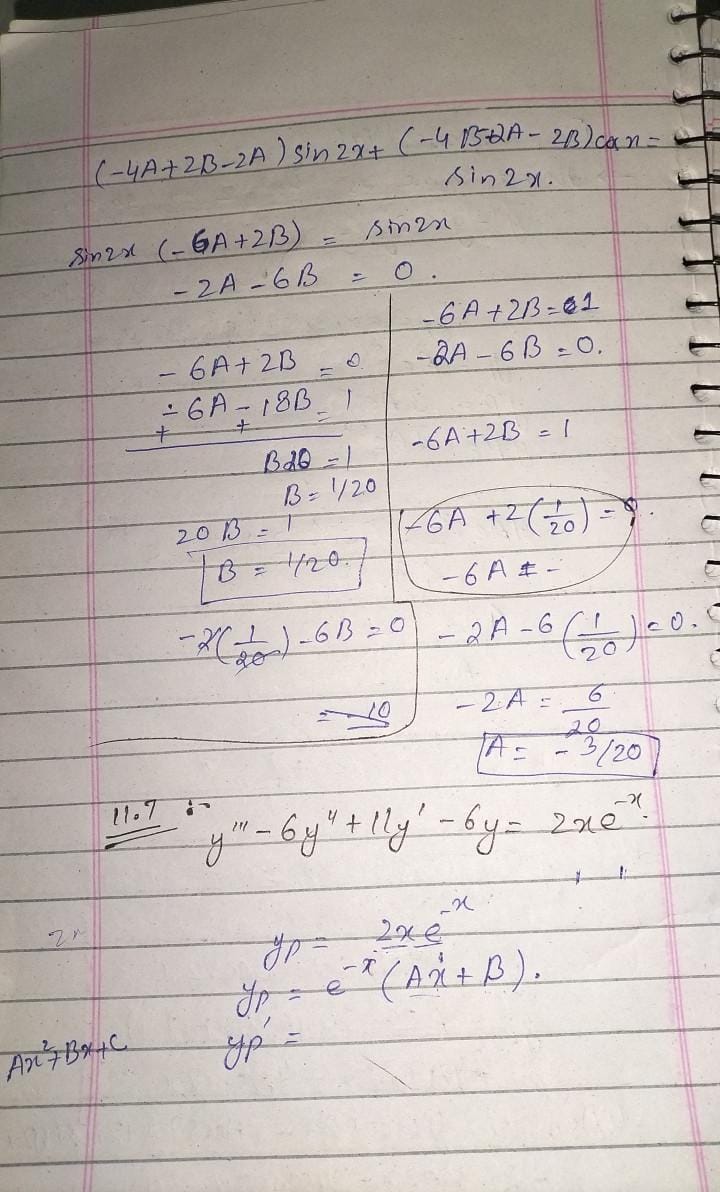 (-4A+2B-2A) sin2x + (-4B-2A-2B) cos x =
sin2x.
sin2x (-6A+2B) = sin2x
-2A-6B = 0.
-6A+2B = 0
-6A-18B = 1
+ +
B20 = 1
B = 1/20
20B = 1
B = 1/20.
-2(1/20) - 6B = 0
= -10
-6A+2B = 1
-2A-6B = 0.
-6A+2B = 1
-6A+2(1/20) = 0.
-6A = -
-2A-6(1/20) = 0.
-2A = 6/20
A = -3/20
11.7 :-
y''' - 6y'' + 11y' - 6y = 2xe^-x.
yp = 2xe^-x
yp = e^-x (Ax+B).
yp' =
2x
Ax²+Bx+C